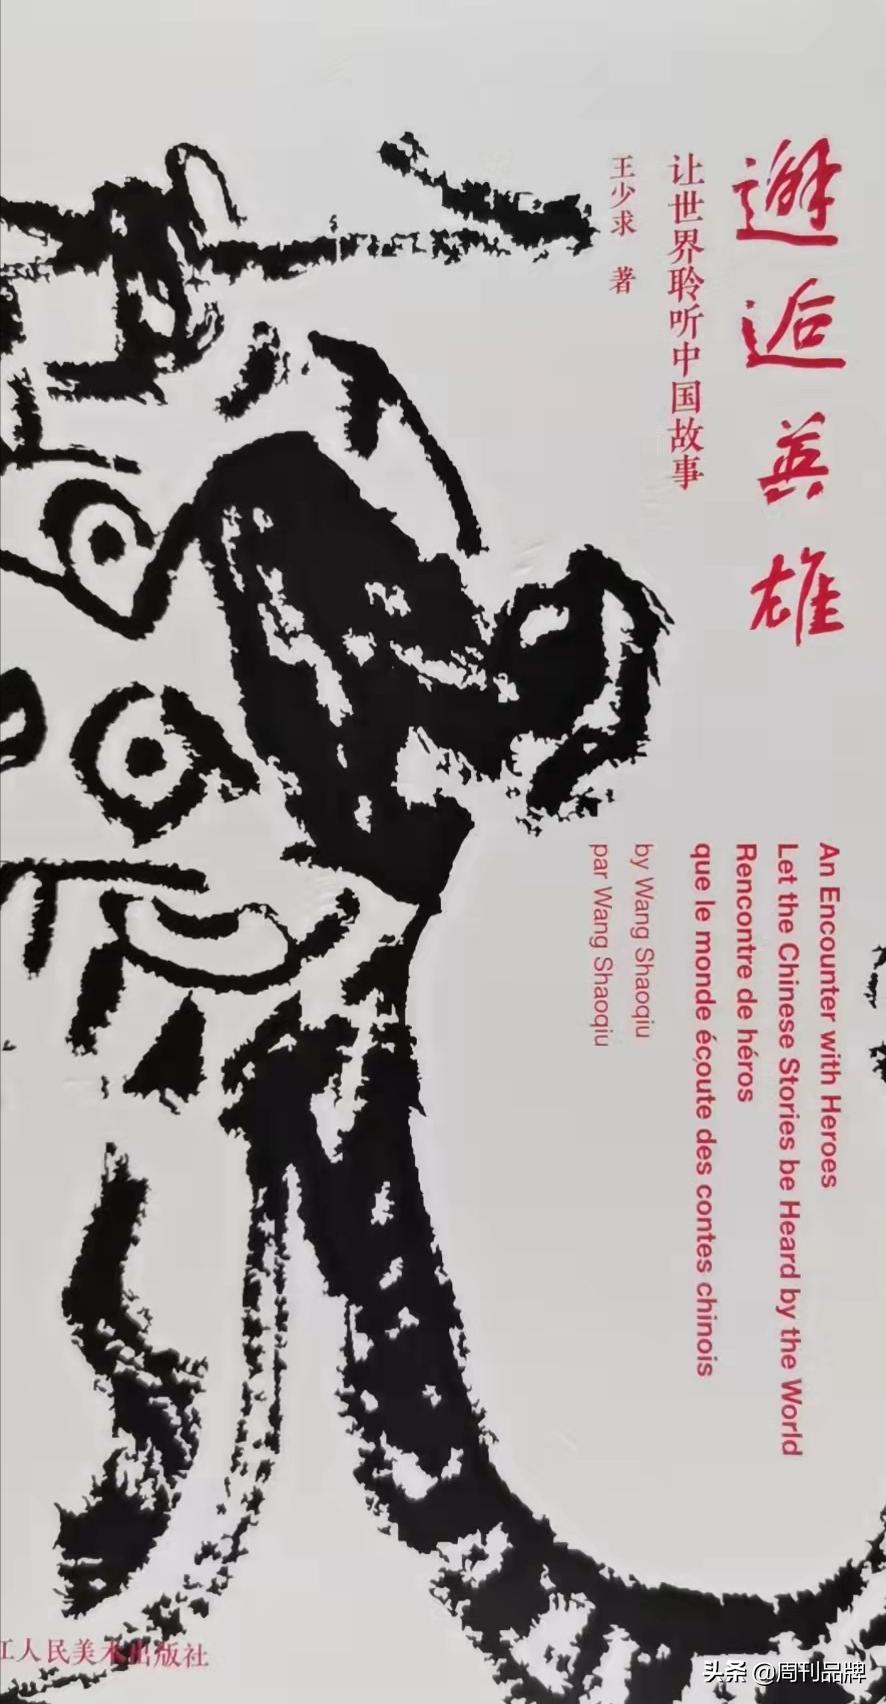 邂逅英雄
让世界聆听中国故事
王少求 著
An Encounter with Heroes
Let the Chinese Stories be Heard by the World
Rencontre de héros
que le monde écoute des contes chinois
by Wang Shaoqiu
par Wang Shaoqiu
江人民美术出版社
头条 @周刊品牌